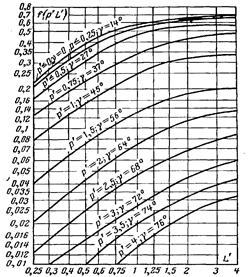 0,8
f(p'L')
0,7
0,6
0,5
0,4
0,3
0,25
0,2
0,16
0,13
0,1
0,08
0,06
0,05
0,04
0,03
0,025
0,02
0,016
0,014
0,012
0,01
p'=0,5; γ=27°
p'=0,75; γ=37°
p'=1; γ=45°
p'=1,5; γ=56°
p'=2; γ=64°
p'=2,5; γ=68°
p'=3; γ=72°
p'=3,5; γ=74°
p'=4; γ=76°
0,25 0,3 0,4 0,5 0,6 0,8 1 1,25 1,5 2 3 4
L'